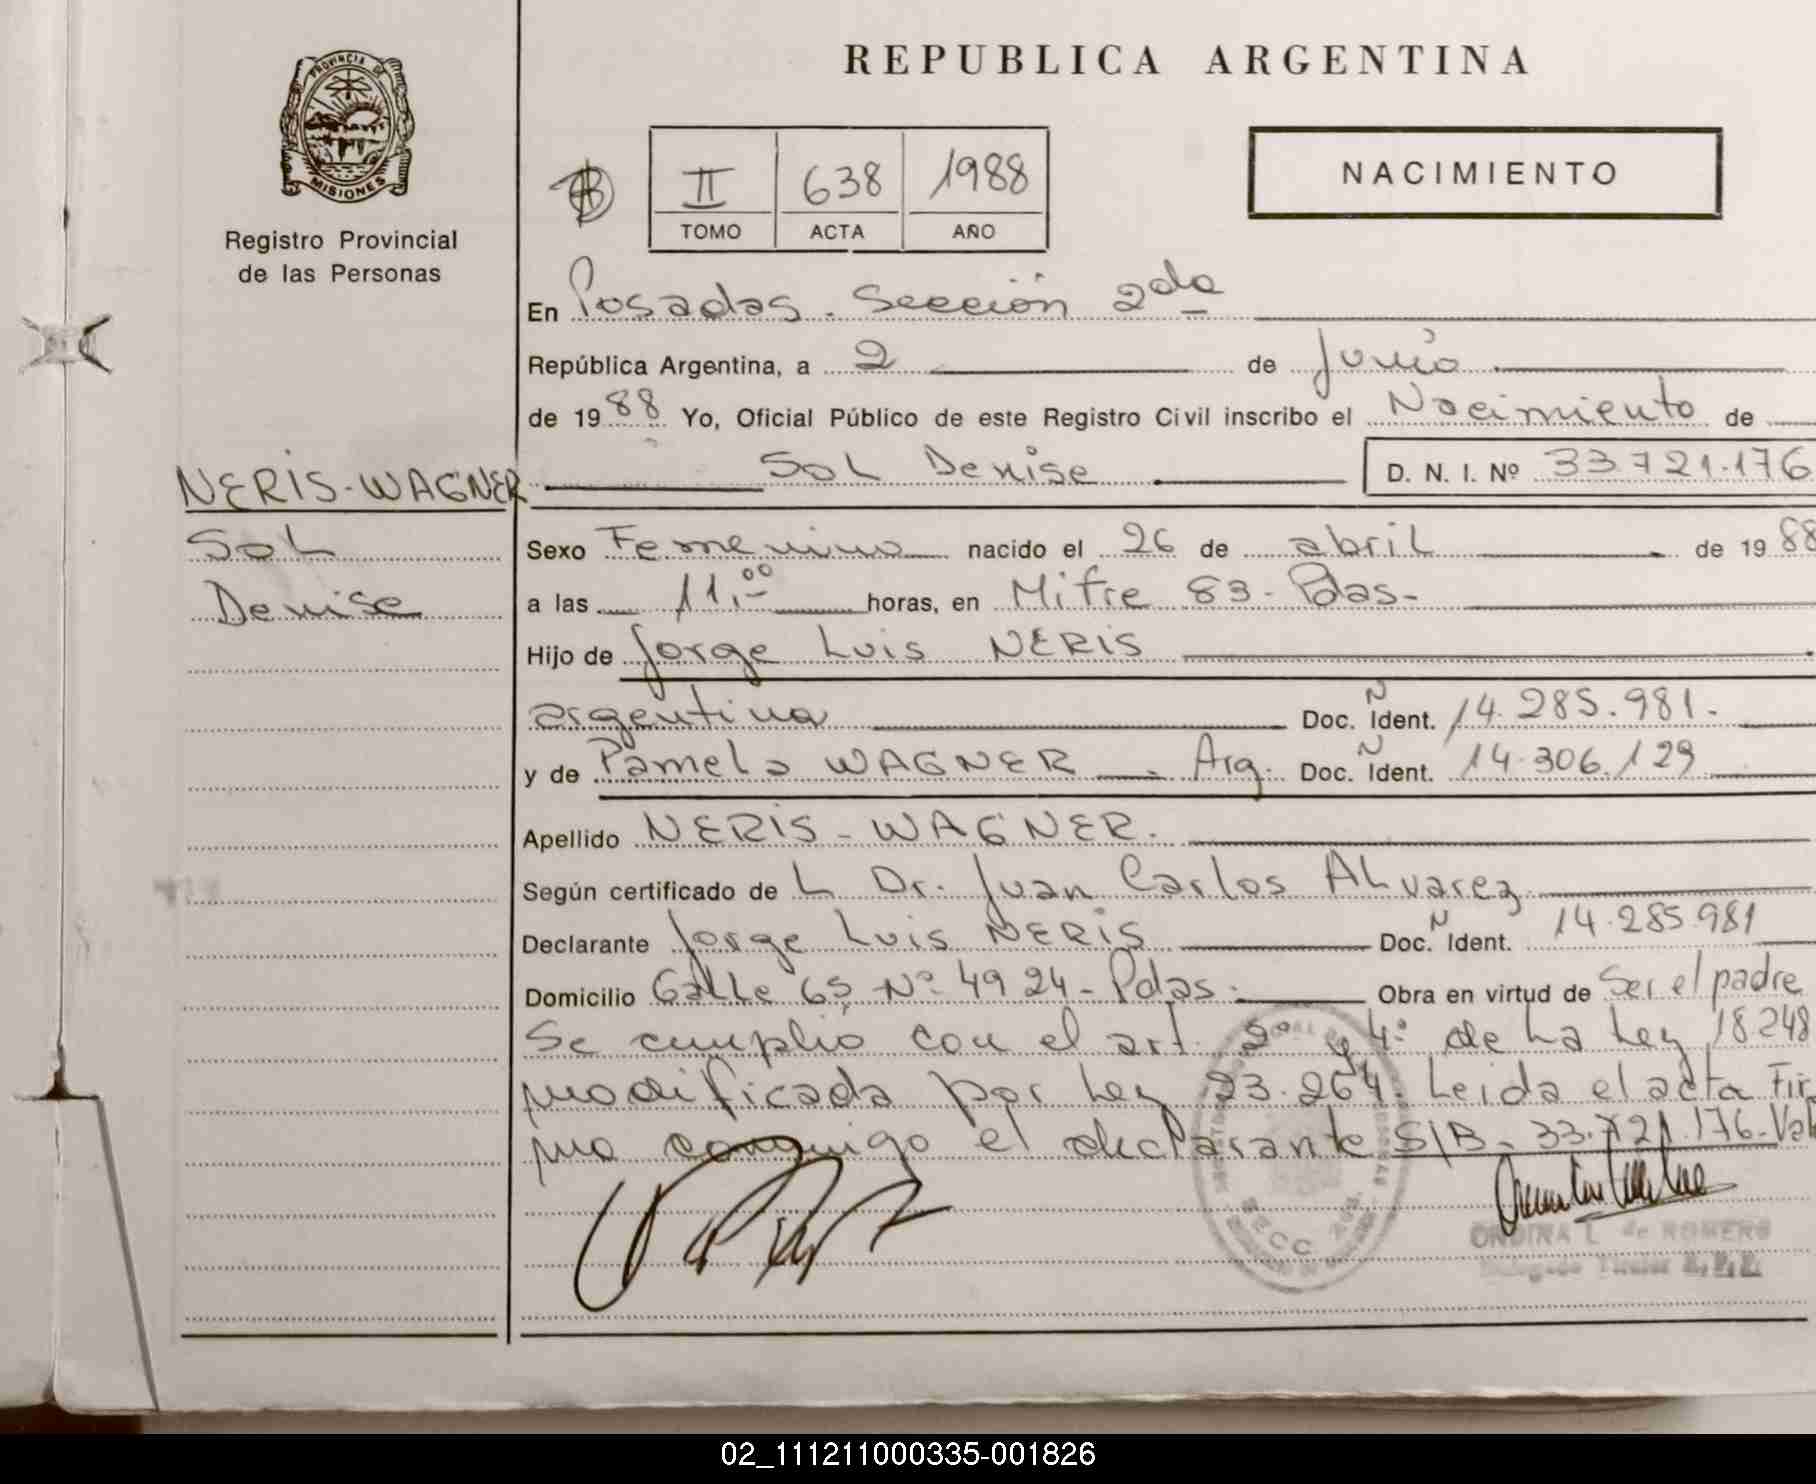 REPUBLICA ARGENTINA
PROVINCIA DE
MISIONES
Registro Provincial
de las Personas
II 638 1988
TOMO ACTA AÑO
NACIMIENTO
En Posadas. Sección 2da
República Argentina, a 2 de Junio
de 1988 Yo, Oficial Público de este Registro Civil inscribo el Nacimiento de
NERIS-WAGNER
Sol
Denise
Sol Denise D. N. I. Nº 33.721.176
Sexo Femenino nacido el 26 de abril de 1988
a las 11,00 horas, en Mitre 83- Pdas-
Hijo de Jorge Luis NERIS
argentina Doc. Ñ Ident. 14.285.981.
y de Pamela WAGNER Arg. Doc. Ñ Ident. 14.306.129
Apellido NERIS-WAGNER.
Según certificado de L Dr. Juan Carlos ALvarez
Declarante Jorge Luis NERIS Doc. Ñ Ident. 14.285.981
Domicilio Calle 65 Nº 4924- Pdas. Obra en virtud de Ser el padre
Se cumplió con el art. 2º y 4º de la Ley 18.248
modificada por Ley 23.264. Leida el acta Fir
ma conmigo el declarante S/B- 33.721.176-Vale
ONDINA L. de ROMERO
Delegado Titular R. P. P.
02_111211000335-001826